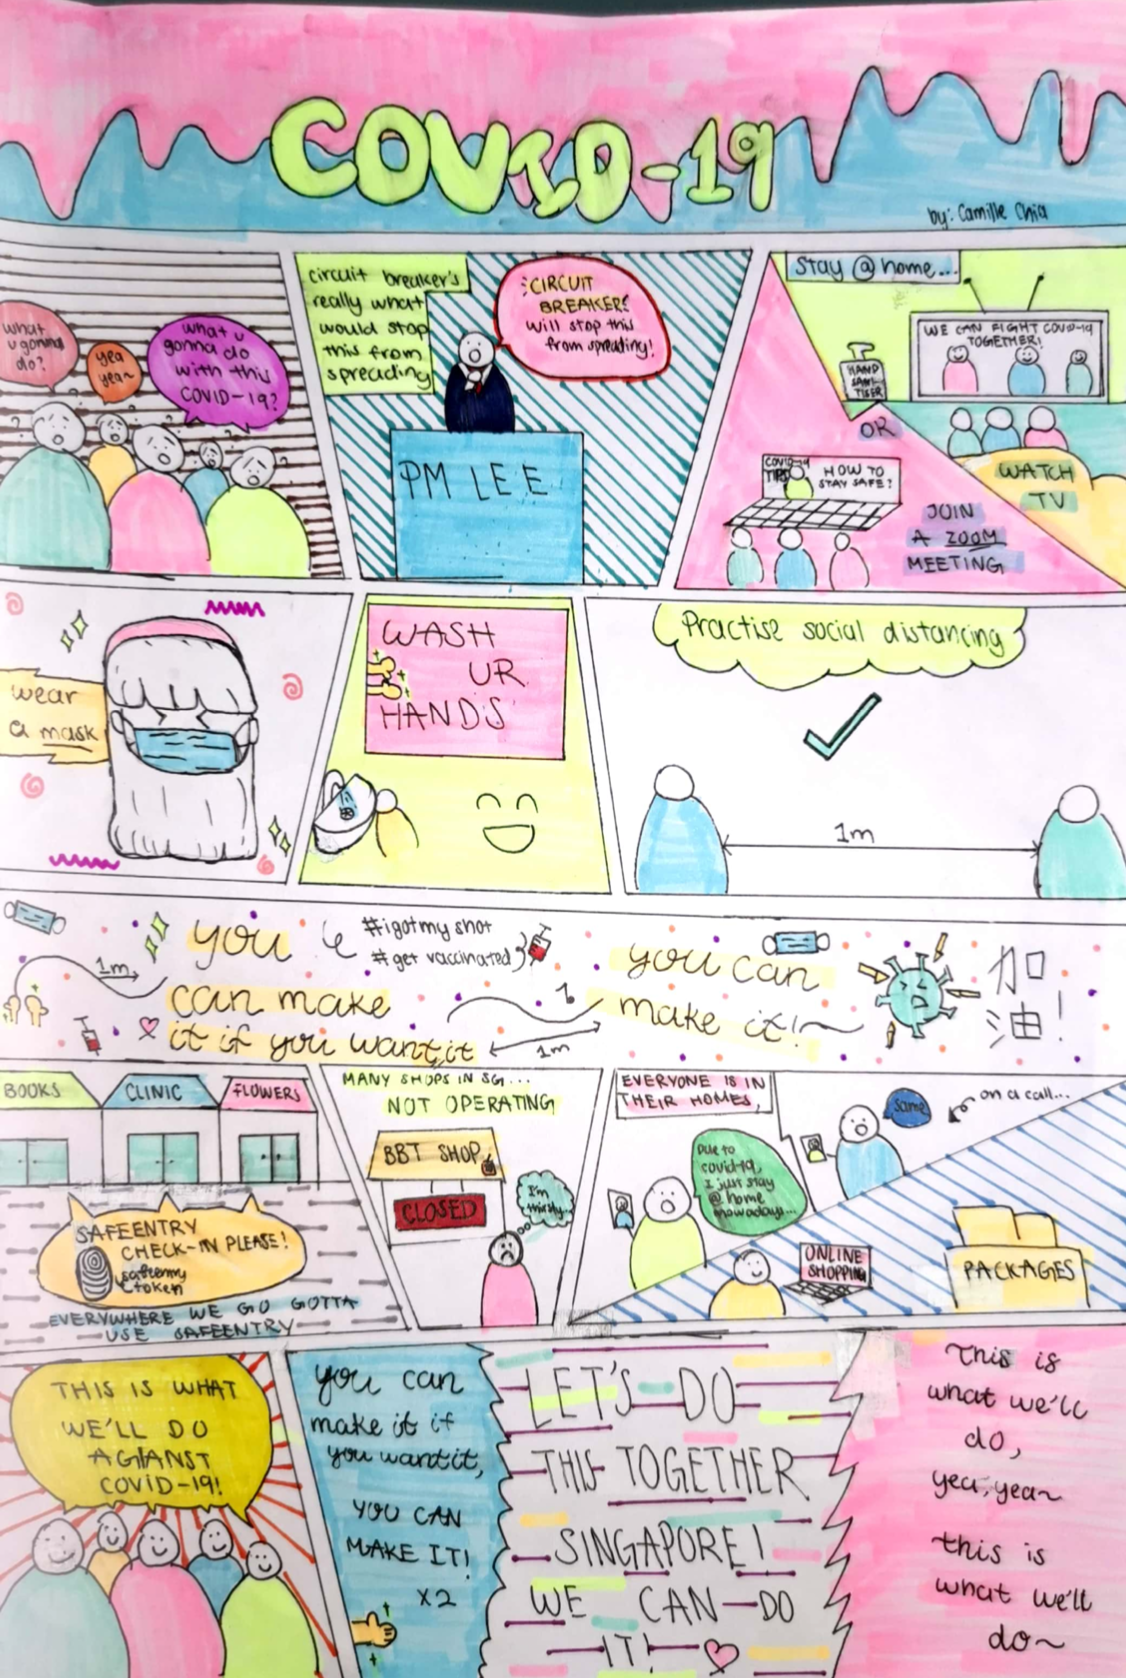 COVID-19
by: Camille Chia
what
u gonna
do?
yea
yea~
what u
gonna do
with this
COVID-19?
circuit breaker's
really what
would stop
this from
spreading
CIRCUIT
BREAKERS
will stop this
from spreading!
PM LEE
Stay @ home...
WE CAN FIGHT COVID-19
TOGETHER!
HAND
SANI-
TISER
OR
WATCH
TV
COVID-19
TIPS
HOW TO
STAY SAFE?
JOIN
A ZOOM
MEETING
wear
a mask
WASH
UR
HANDS
Practise social distancing
1m
1m
you
can make
it if you want it
#igotmyshot
#get vaccinated
1m
you can
make it!~
加
油!
BOOKS
CLINIC
FLOWERS
SAFEENTRY
CHECK-IN PLEASE!
safeentry
token
EVERYWHERE WE GO GOTTA
USE SAFEENTRY
MANY SHOPS IN SG...
NOT OPERATING
BBT SHOP
CLOSED
I'm
thirsty...
EVERYONE IS IN
THEIR HOMES,
Due to
covid-19,
I just stay
@ home
nowadays...
same
on a call...
ONLINE
SHOPPING
PACKAGES
THIS IS WHAT
WE'LL DO
AGIANST
COVID-19!
you can
make it if
you want it,
YOU CAN
MAKE IT!
x2
LET'S DO
THIS TOGETHER
SINGAPORE!
WE CAN DO
IT!
This is
what we'll
do,
yea, yea~
this is
what we'll
do~